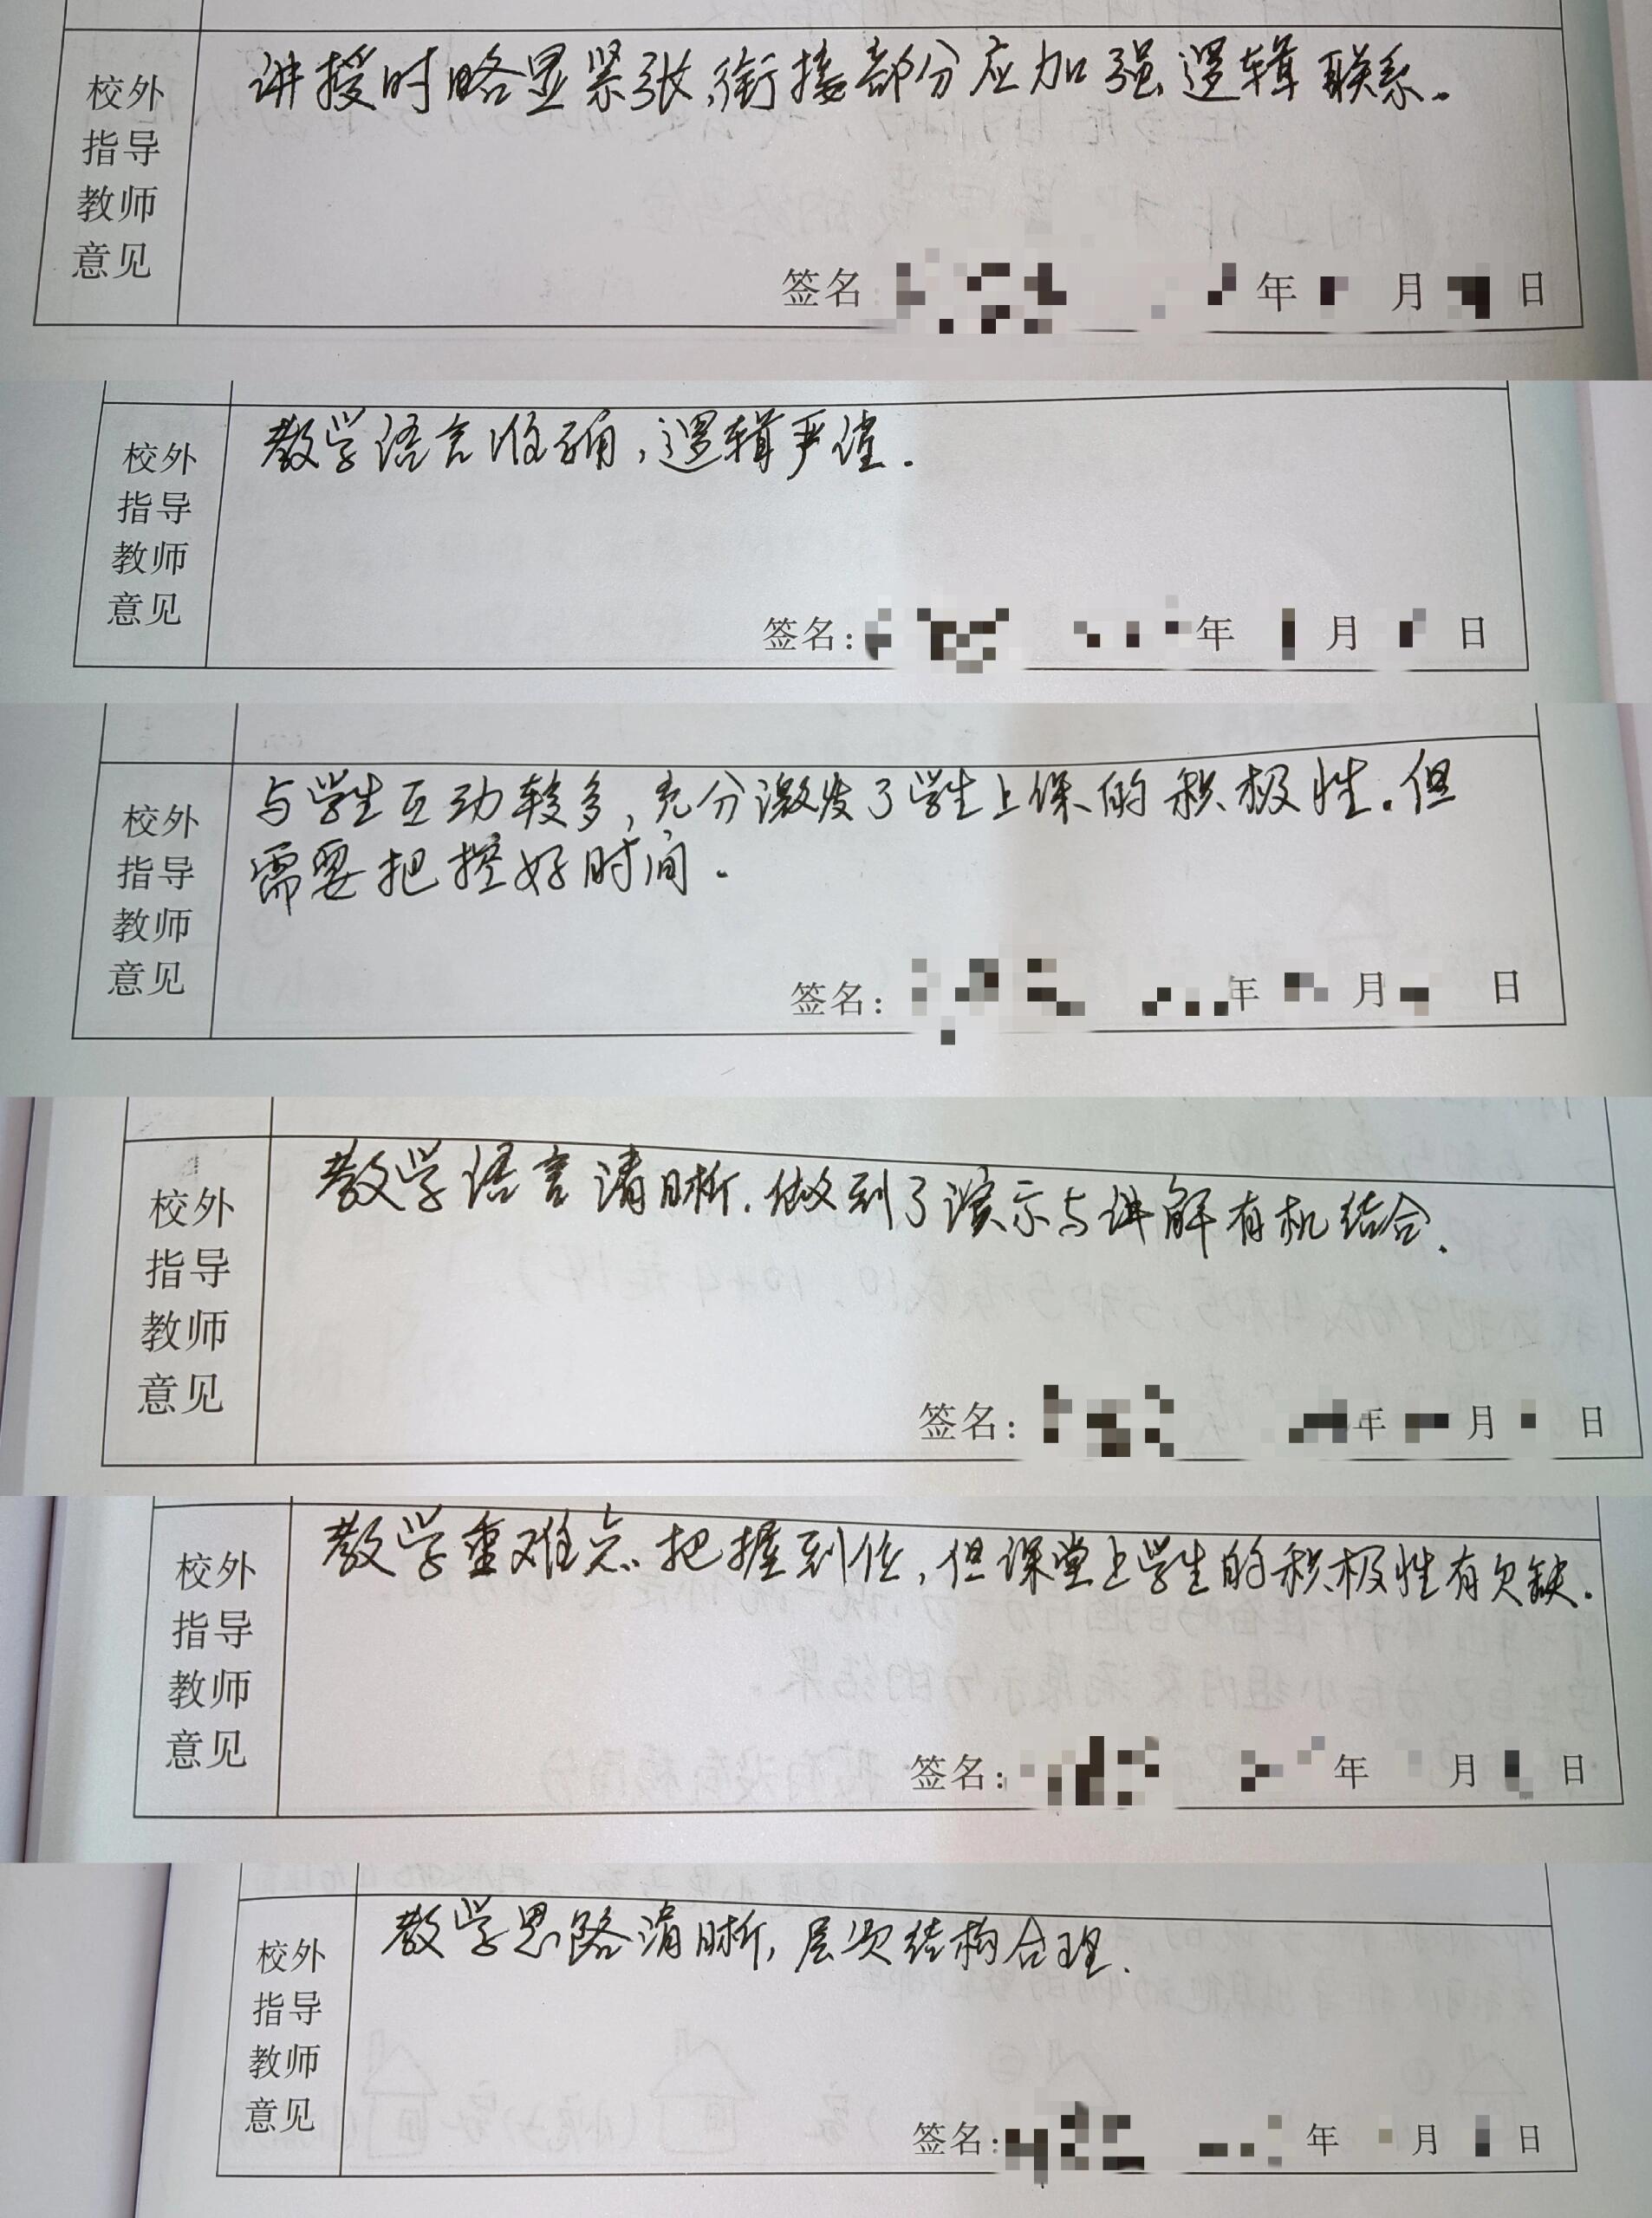 讲授时略显紧张,衔接部分应加强逻辑联系.
校外
指导
教师
意见
签名 年 月 日
教学语言准确,逻辑严谨.
校外
指导
教师
意见
签名: 年 月 日
与学生互动较多,充分激发了学生上课的积极性.但
需要把控好时间.
校外
指导
教师
意见
签名: 年 月 日
教学语言清晰.做到了演示与讲解有机结合.
校外
指导
教师
意见
签名: 年 月 日
教学重难点把握到位,但课堂上学生的积极性有欠缺.
校外
指导
教师
意见
签名: 年 月 日
教学思路清晰,层次结构合理.
校外
指导
教师
意见
签名: 年 月 日